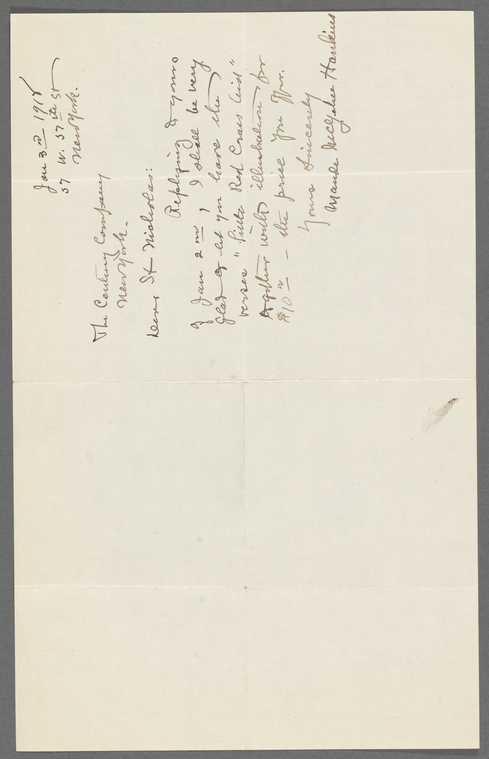 Jan 3rd 1918
57 W. 57th St
New York.
The Century Company
New York.
Dear St Nicholas:
Replying to yours
of Jan 2nd, I shall be very
glad to let you have the
verses "Little Red Cross Aid"
together with illustration for
$10.00 – the price you offer.
Yours Sincerely
Maude McGehee Hankins